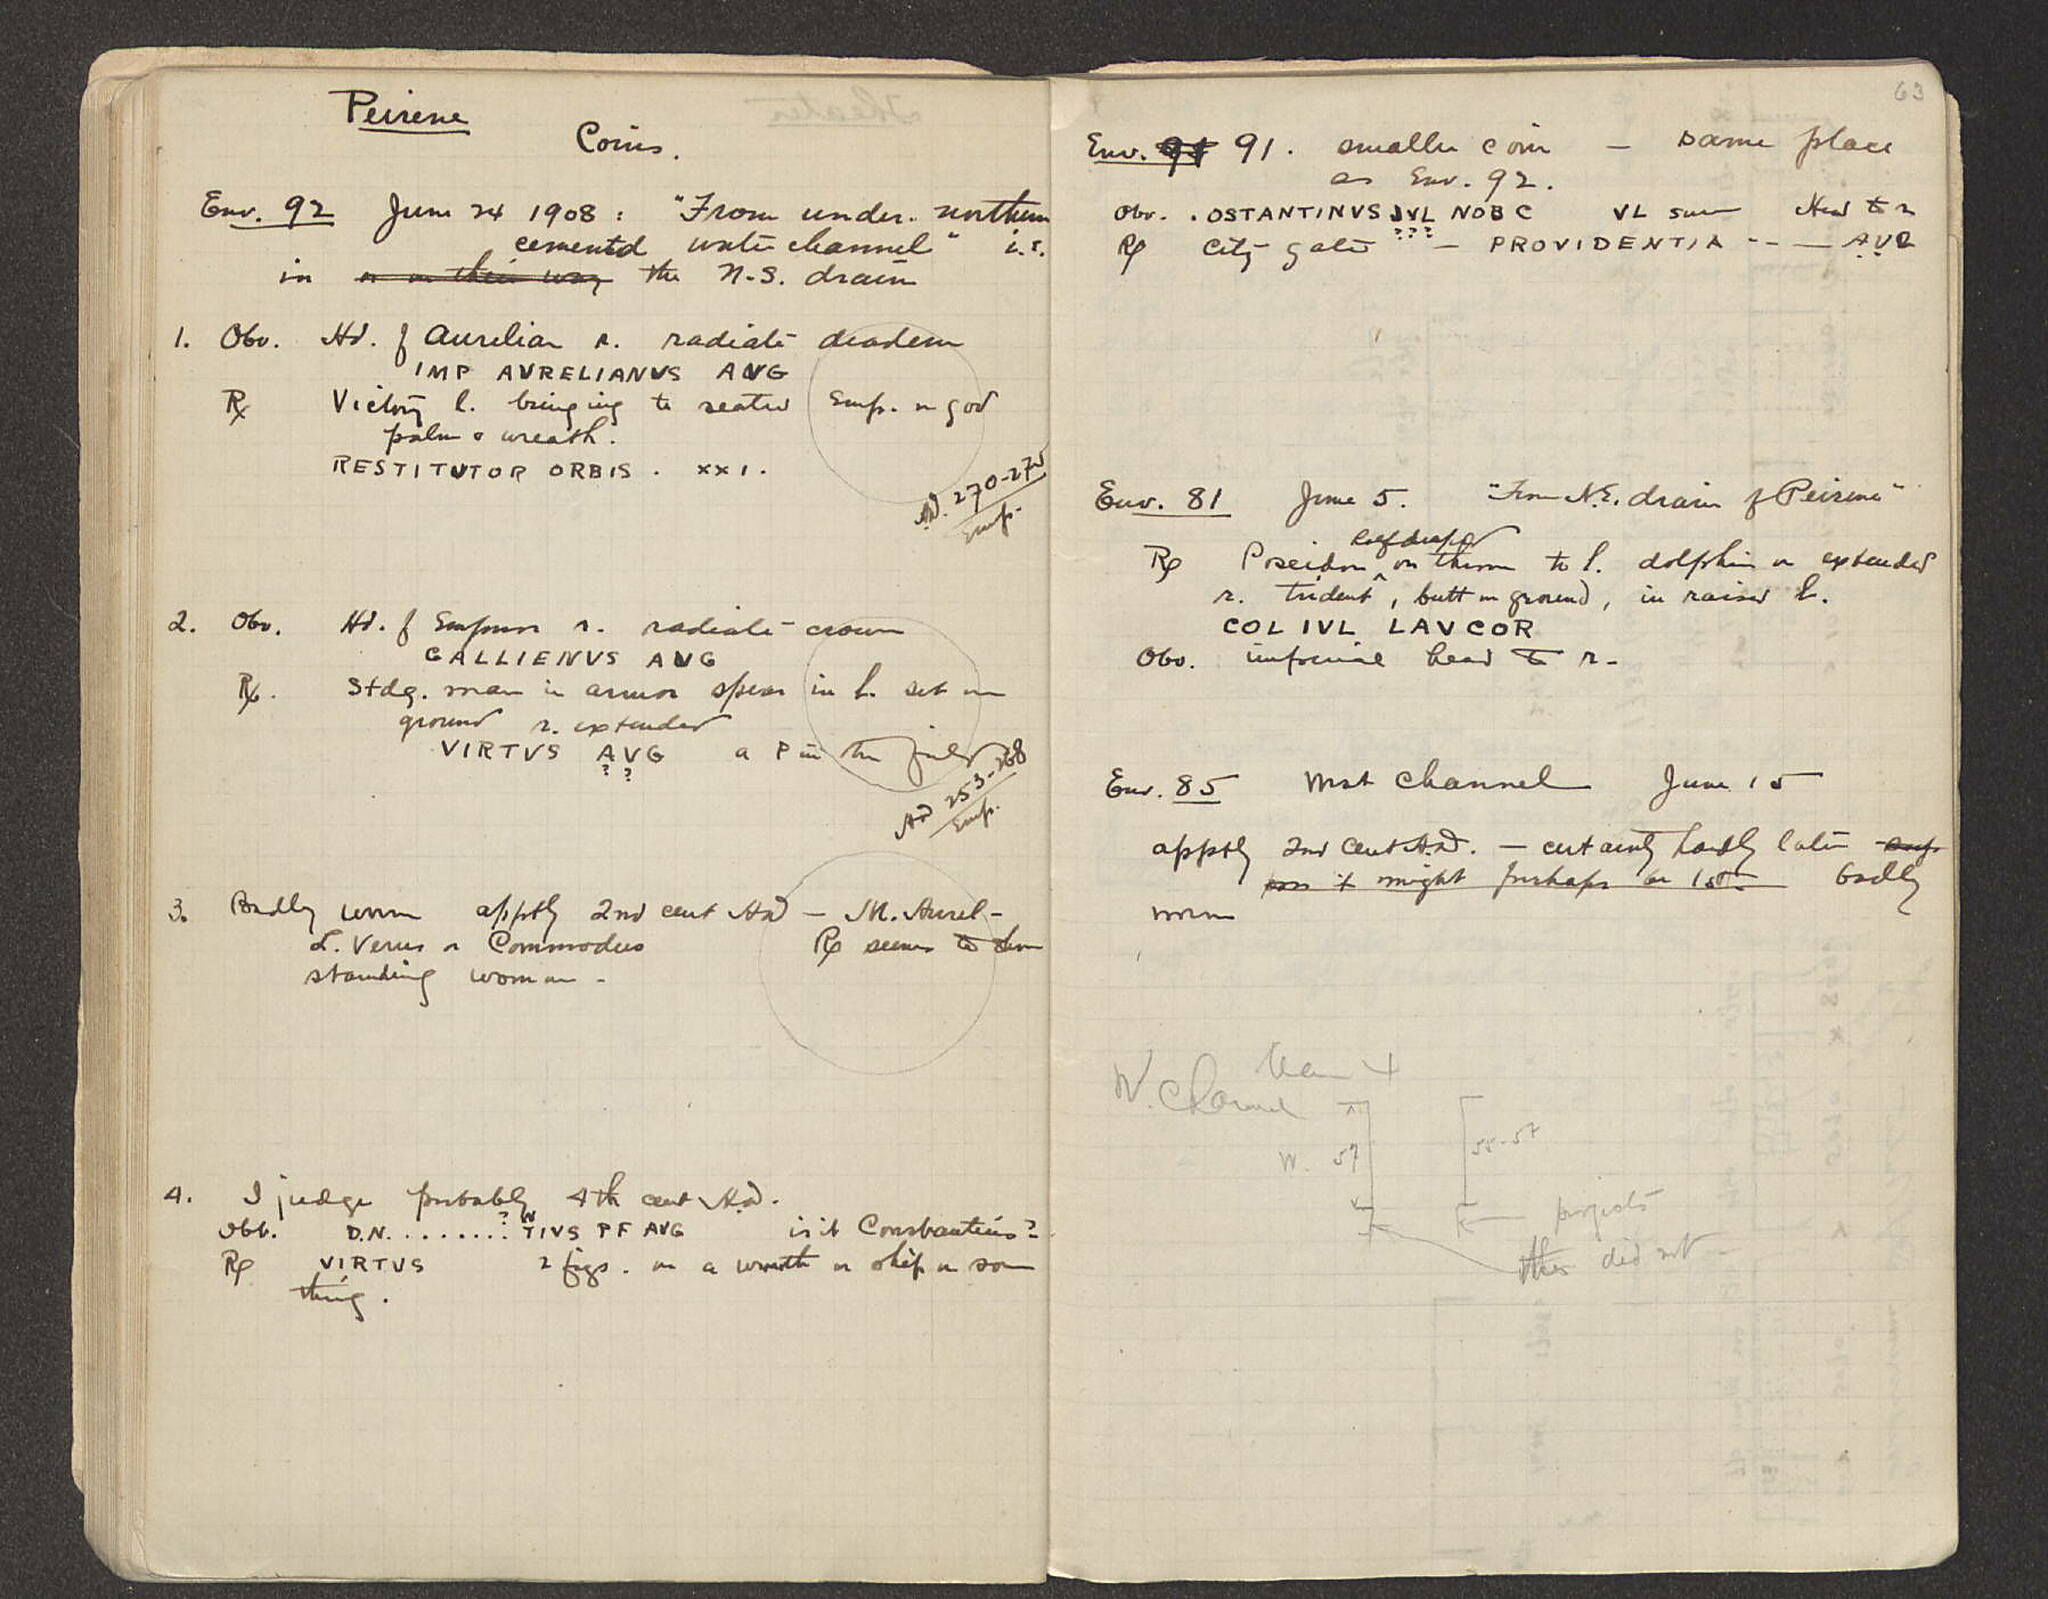 Peirene
Coins.
Env. 92 June 24 1908: "From under northern
cemented water channel" i.e.
in or on their way the N-S. drain
1. Obv. Hd. of Aurelian r. radiate diadem
IMP AVRELIANVS AVG
Rx Victory l. bringing to seated Emp. or god
palm & wreath.
RESTITVTOR ORBIS. XXI.
A.D. 270-275
Emp.
2. Obv. Hd. of Emperor r. radiate crown
GALLIENVS AVG
Rx. Stdg. man in armor spear in l. set on
ground r. extended
VIRTVS AVG a P in the field
? ?
AD 253-268
Emp.
3. Badly worn apptly 2nd cent AD - M. Aurel-
L. Verus or Commodus Rx seems to show
standing woman -
4. I judge probably 4th cent A.D.
Obv. D.N. . . . . . . . ? TIVS PF AVG is it Constantius?
Rx VIRTVS 2 figs. on a wreath or ship or some
thing.
63
Env. 91. smaller coin - same place
as Env. 92.
Obv. . OSTANTINVS IVL NOB C VL sure Head to r
???
Rx City gate - PROVIDENTIA - - - AVG
Env. 81 June 5. "From N.E. drain of Peirene"
half draped
Rx Poseidon ^ on throne to l. dolphin on extended
r. trident, butt on ground, in raised l.
COL IVL LAV COR
Obv. imperial head to r-
Env. 85 West Channel June 15
apptly 2nd cent A.D. - certainly hardly later
it might perhaps be 1st. badly
worn
W. Channel 4
W. 57 55-57
projects
this did not -